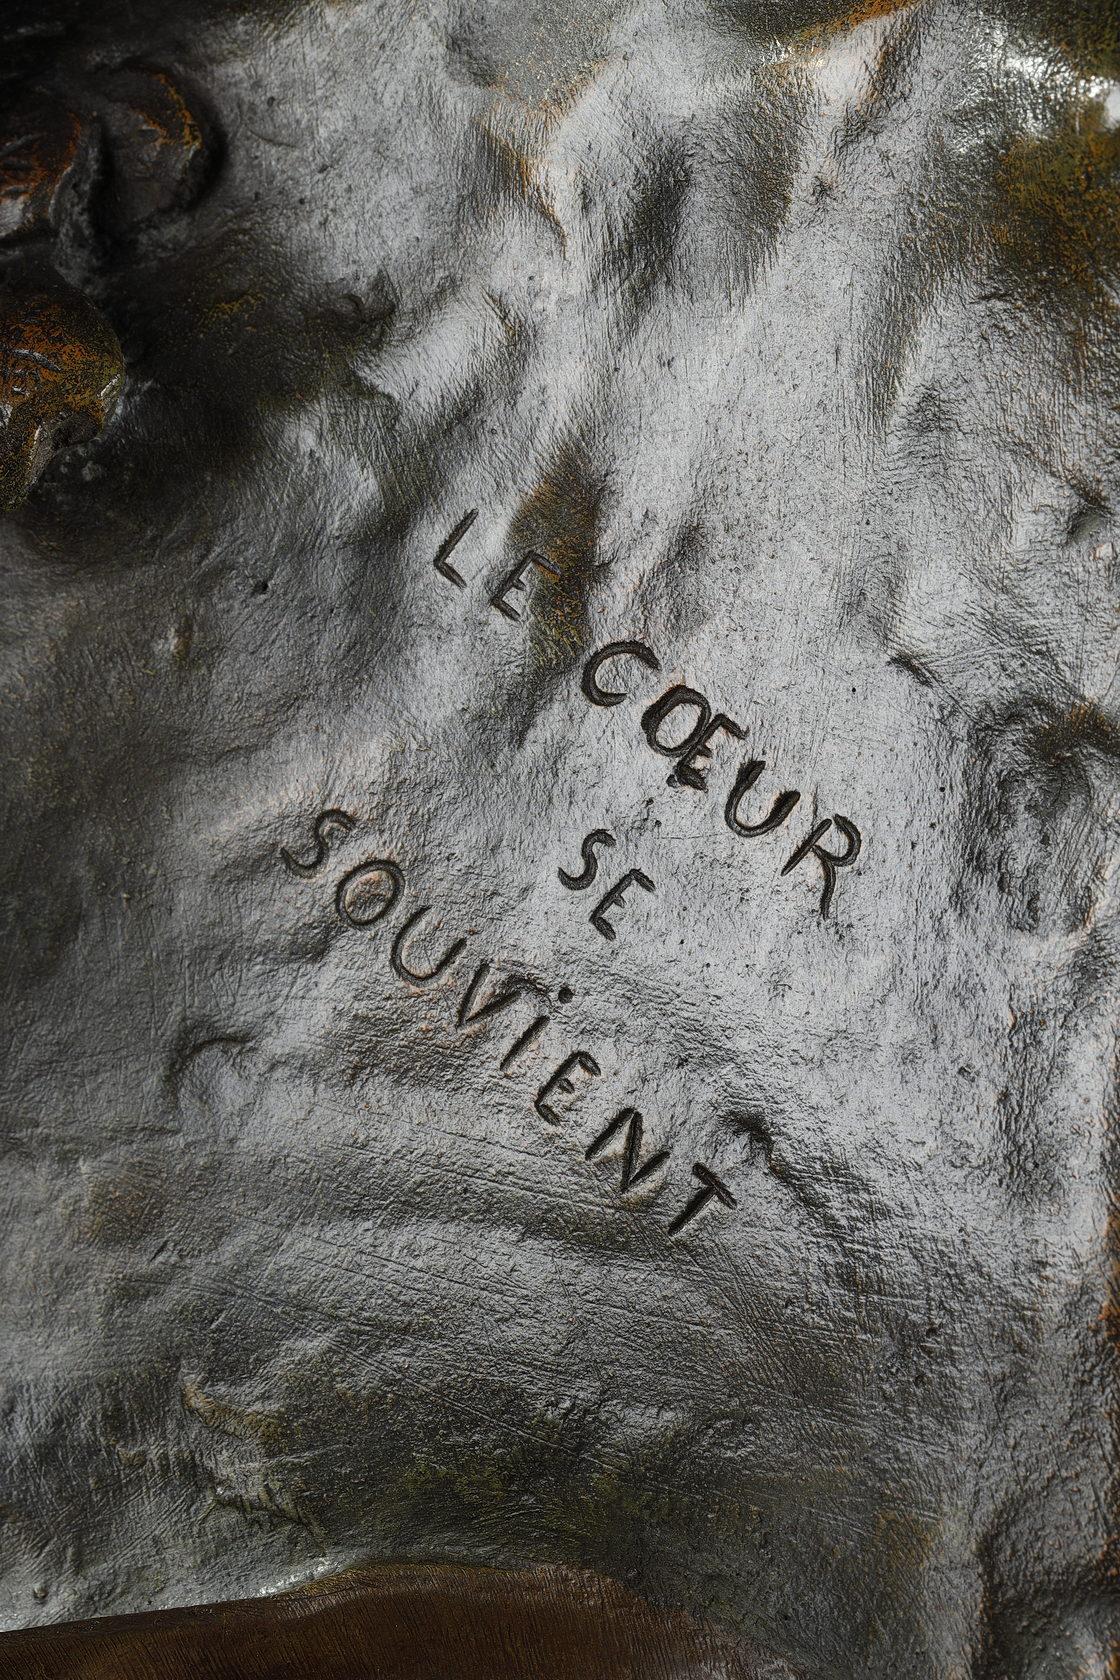 LE CŒUR
SE
SOUViENT